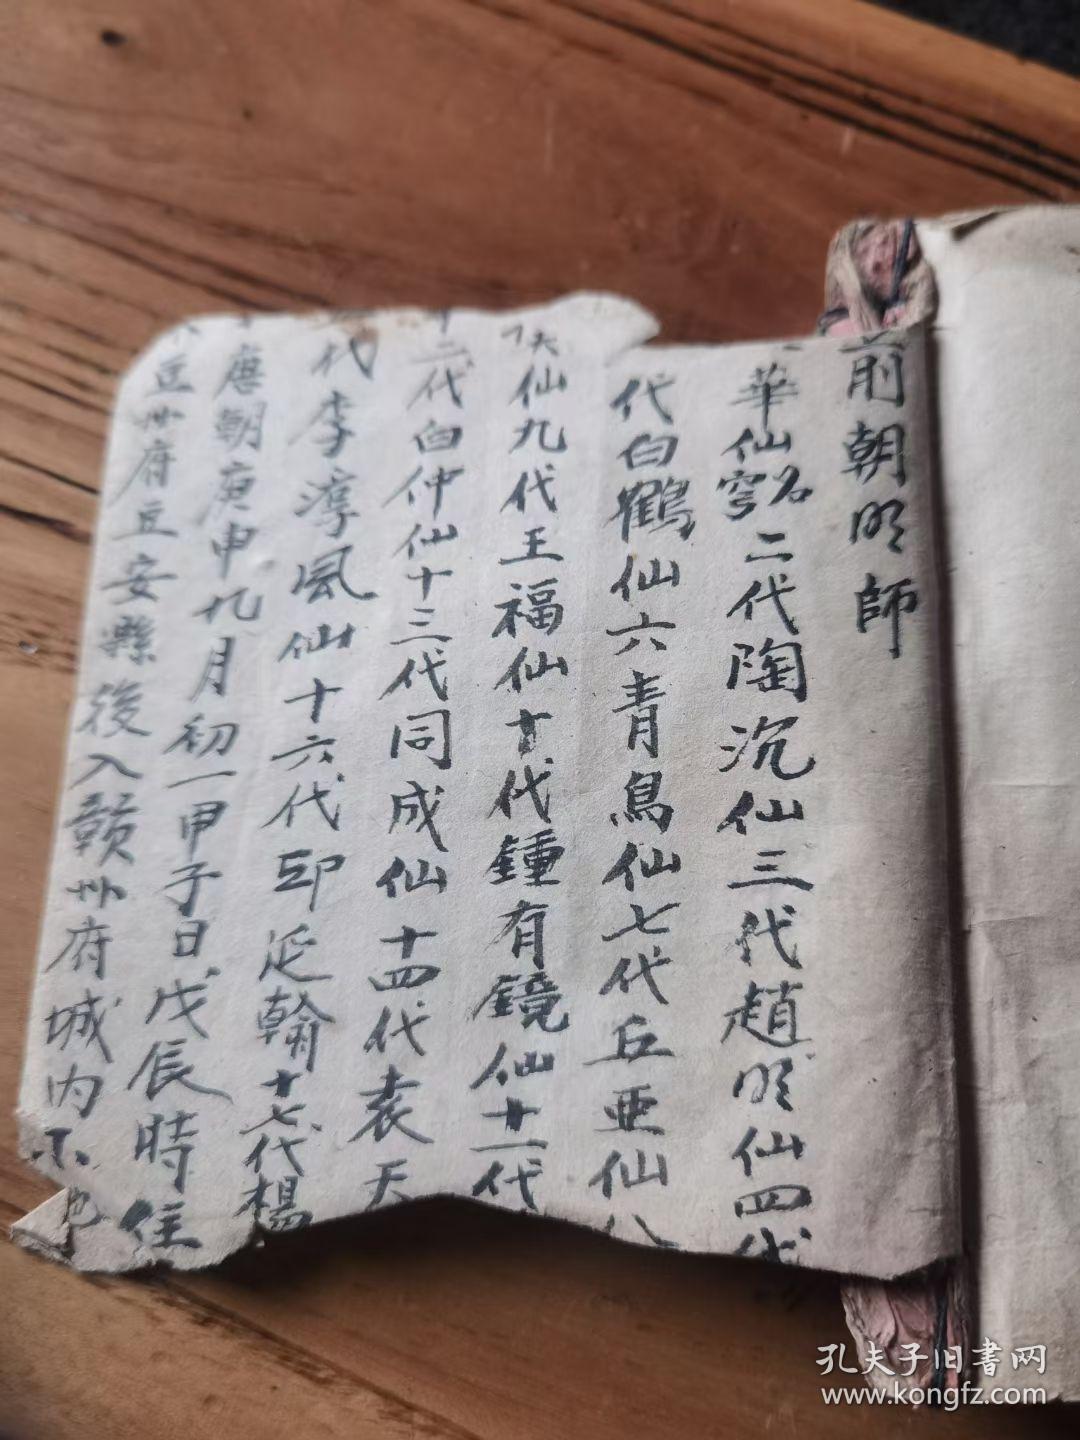 前朝明師
華仙名䆪二代陶沉仙三代趙明仙四代
代白鶴仙六青鳥仙七代丘亜仙八
仙九代王福仙十代鍾有鏡仙十一代
十二代白仲仙十三代同成仙十四代袁天
代李淳風仙十六代印延翰十七代楊
唐朝庚申九月初一甲子日戊辰時住
州府立安縣後入贛州府城内不
孔夫子旧書网
www.kongfz.com